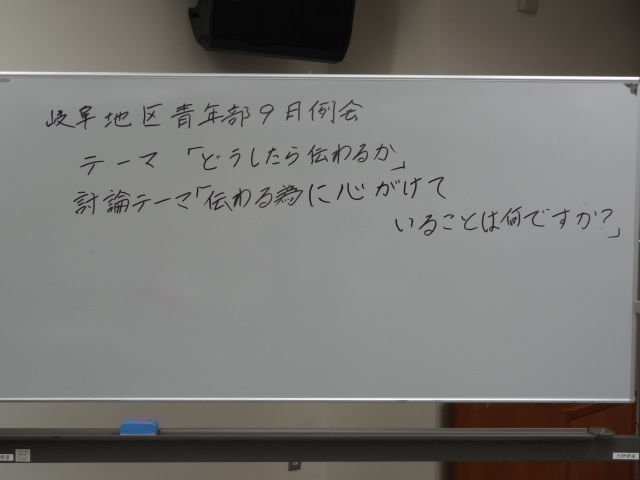 岐阜地区青年部9月例会
テーマ「どうしたら伝わるか」
討論テーマ「伝わる為に心がけて
いることは何ですか?」